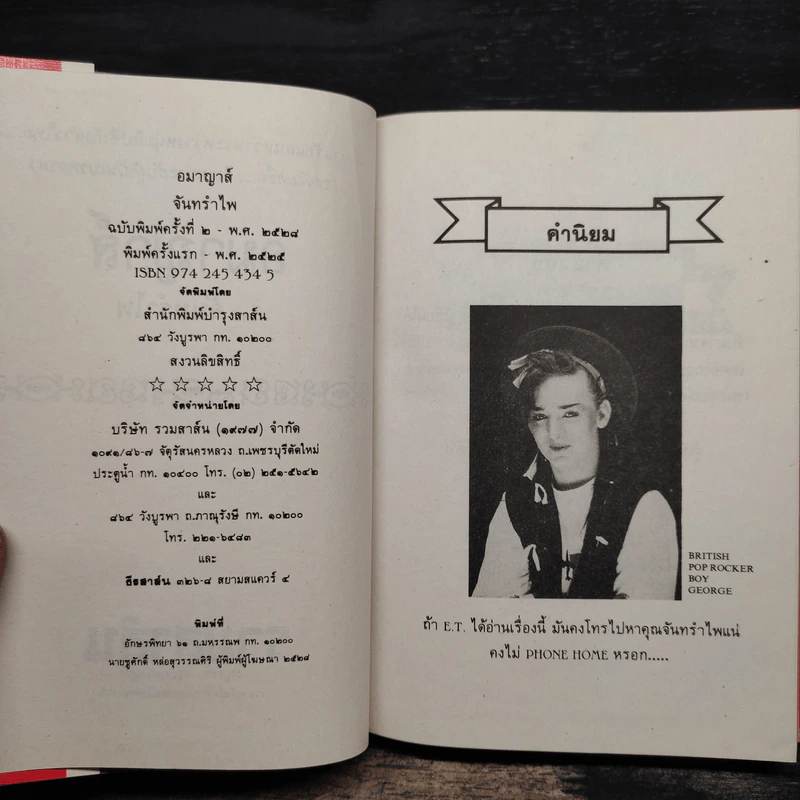 อมาญาส์
จันทรำไพ
ฉบับพิมพ์ครั้งที่ ๒ - พ.ศ. ๒๕๒๘
พิมพ์ครั้งแรก - พ.ศ. ๒๕๒๕
ISBN 974 245 434 5
จัดพิมพ์โดย
สำนักพิมพ์บำรุงสาส์น
๘๖๔ วังบูรพา กท. ๑๐๒๐๐
สงวนลิขสิทธิ์
☆ ☆ ☆ ☆ ☆
จัดจำหน่ายโดย
บริษัท รวมสาส์น (๑๙๗๗) จำกัด
๑๐๙๑/๘๖-๗ จัตุรัสนครหลวง ถ.เพชรบุรีตัดใหม่
ประตูน้ำ กท. ๑๐๔๐๐ โทร. (๐๒) ๒๕๑-๕๖๔๒
และ
๘๖๔ วังบูรพา ถ.ภาณุรังษี กท. ๑๐๒๐๐
โทร. ๒๒๑-๖๔๘๓
และ
ธีรสาส์น ๓๒๖-๘ สยามสแควร์ ๔
พิมพ์ที่
อักษรพิทยา ๖๑ ถ.มหรรณพ กท. ๑๐๒๐๐
นายชูศักดิ์ หล่อสุวรรณศิริ ผู้พิมพ์ผู้โฆษณา ๒๕๒๘
คำนิยม
BRITISH
POP ROCKER
BOY
GEORGE
ถ้า E.T. ได้อ่านเรื่องนี้ มันคงโทรไปหาคุณจันทรำไพแน่
คงไม่ PHONE HOME หรอก.....